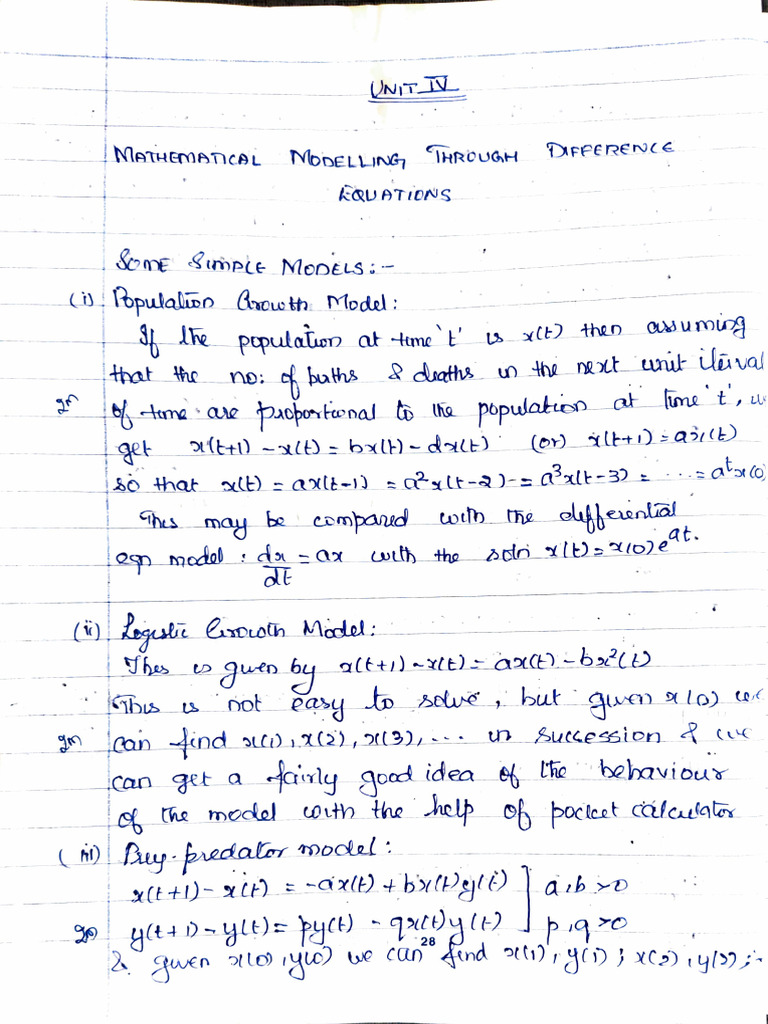 UNIT IV
MATHEMATICAL MODELLING THROUGH DIFFERENCE
EQUATIONS
SOME SIMPLE MODELS:-
(i) Population Growth Model:
If the population at time 't' is x(t) then assuming
that the no: of births & deaths in the next unit iterval
2m of time are proportional to the population at time 't',
get x(t+1) - x(t) = bx(t) - dx(t) (or) x(t+1) = ax(t)
so that x(t) = ax(t-1) = a²x(t-2) = a³x(t-3) = ..... = aᵗx(0)
This may be compared with the differential
eqn model : dx/dt = ax with the soln x(t) = x(0)eᵃᵗ.
(ii) Logistic Growth Model:
This is given by x(t+1) - x(t) = ax(t) - bx²(t)
This is not easy to solve, but given x(0) we
2m can find x(1), x(2), x(3), ... in succession & we
can get a fairly good idea of the behaviour
of the model with the help of pocket calculator
(iii) Prey-predator model:
x(t+1) - x(t) = -ax(t) + bx(t)y(t) ] a,b >0
y(t+1) - y(t) = py(t) - qx(t)y(t) ] p,q >0
& given x(0), y(0) we can find x(1), y(1) ; x(2), y(2);-
28